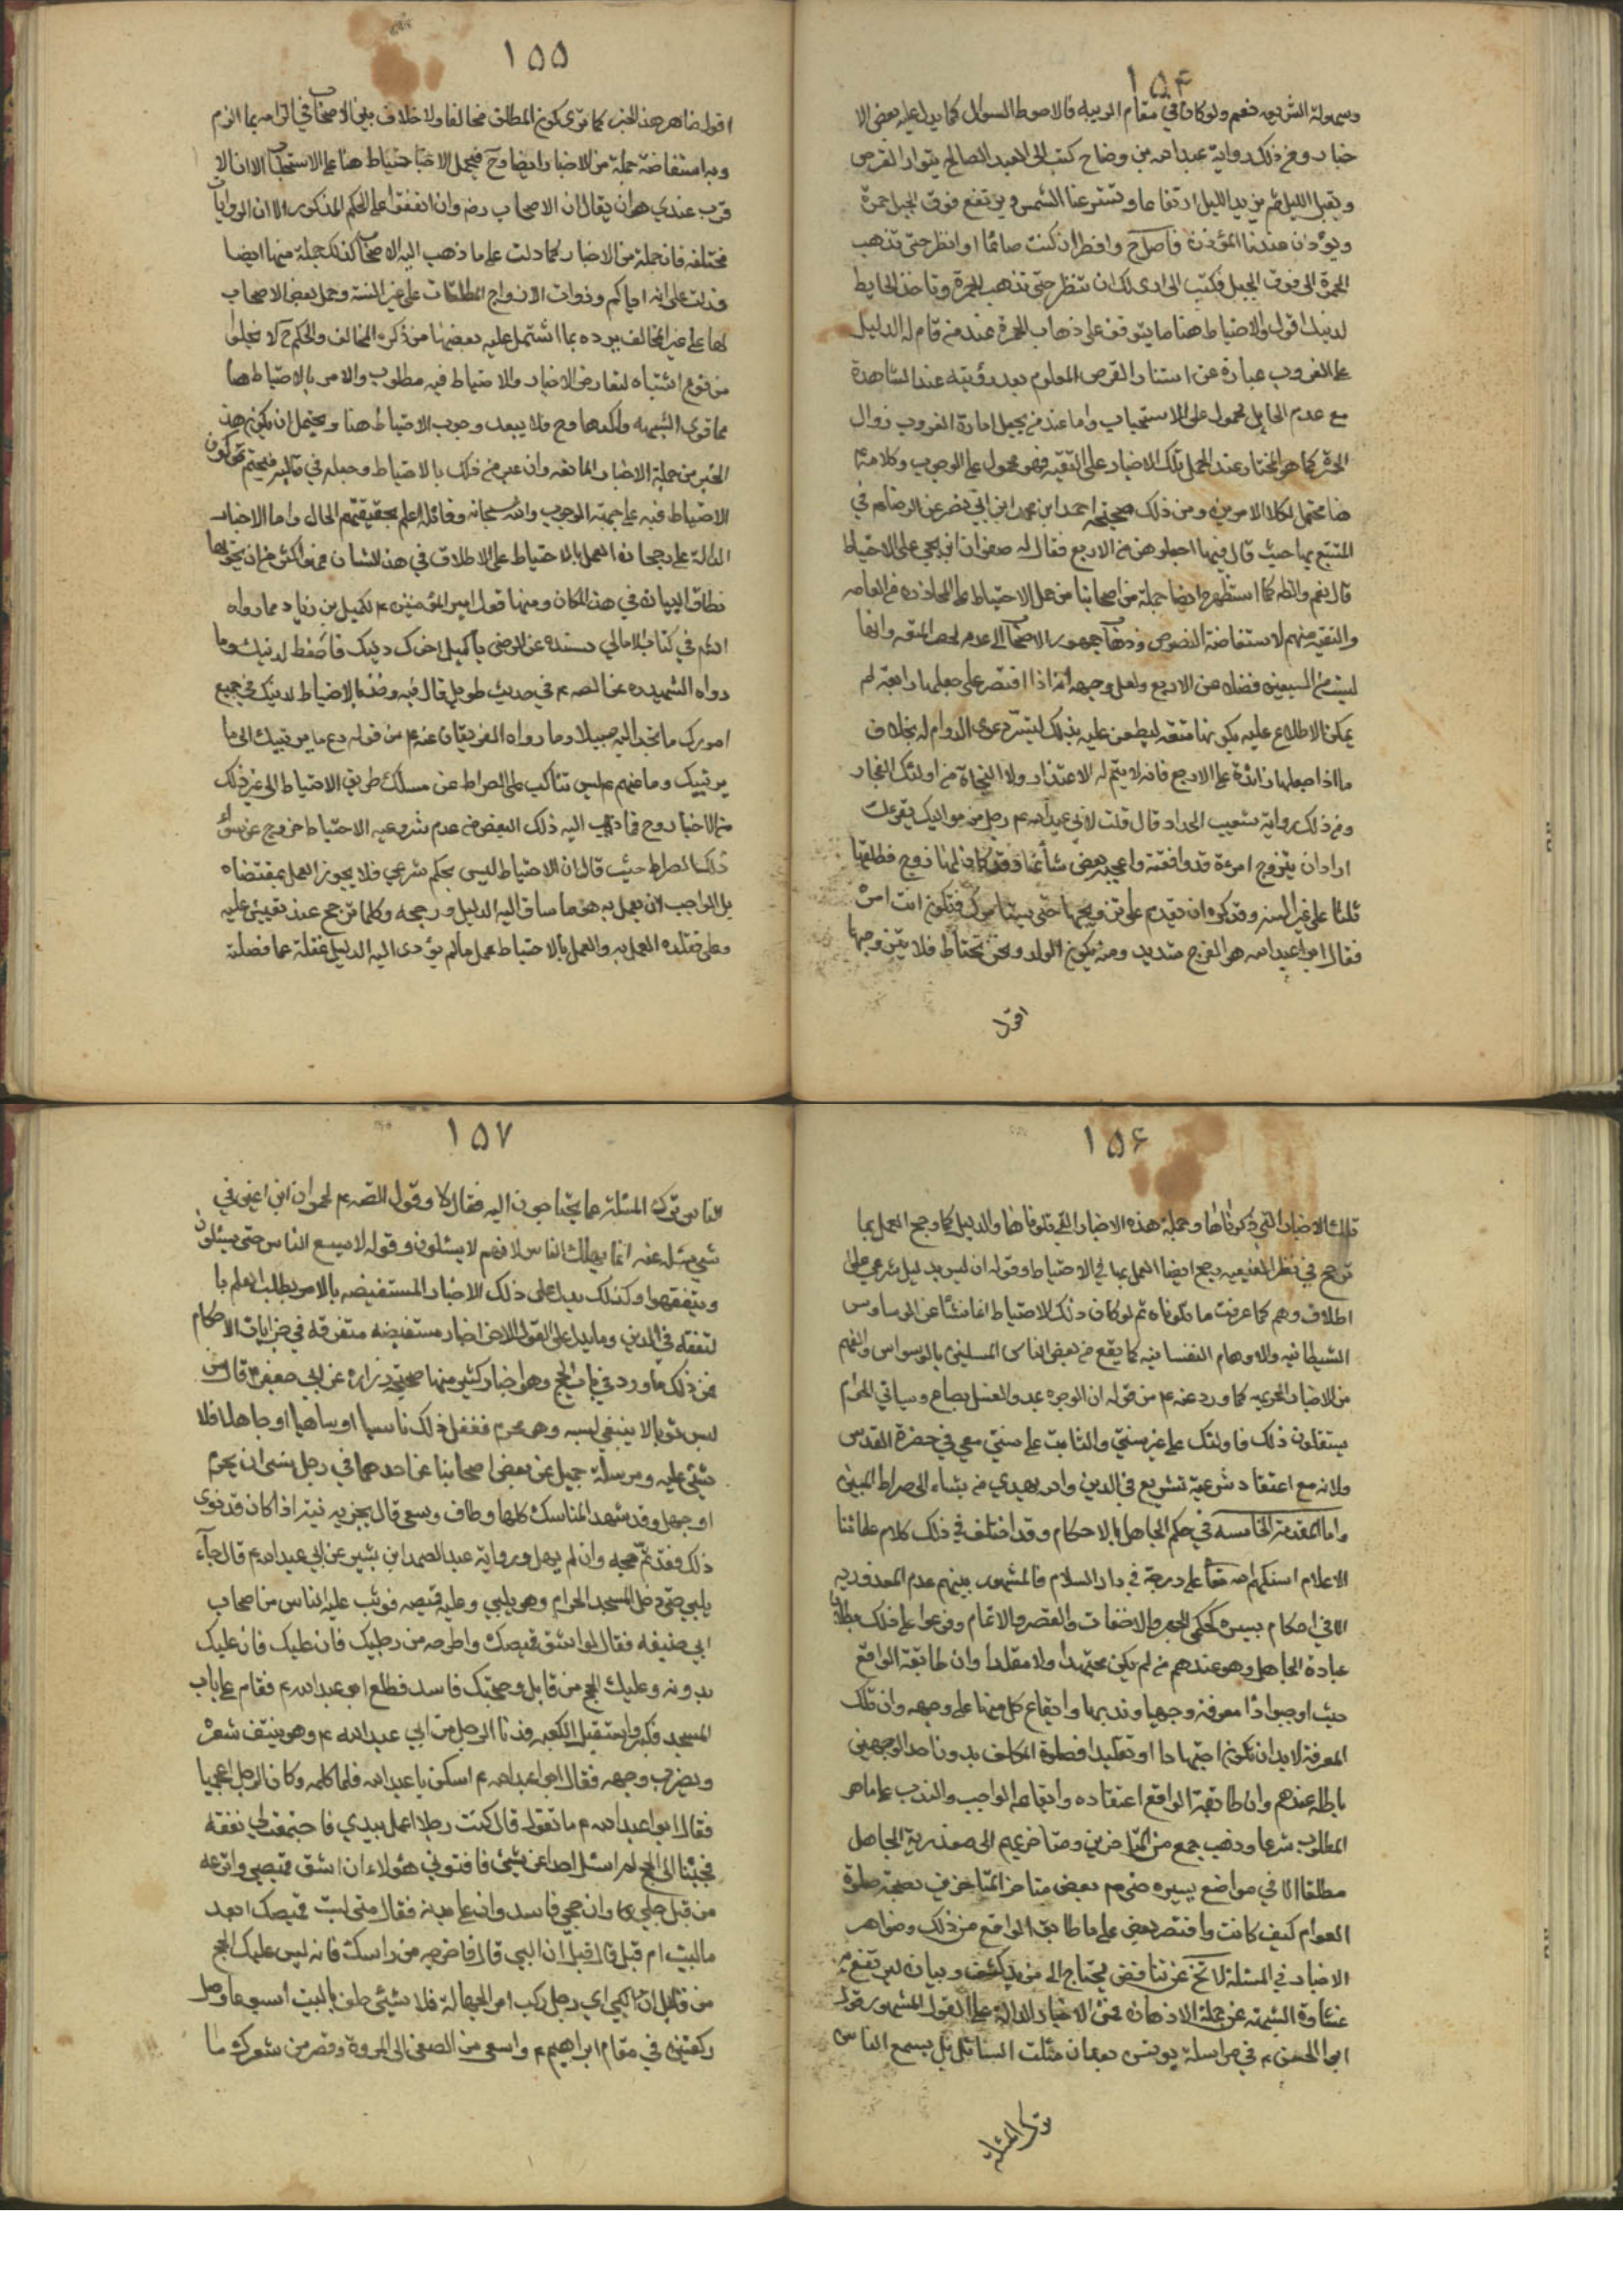 ١٥۴
وسهولة الشريعه فنعم ولو كان في مقام الريبه فالاحوط السوال كما يدل عليه بعض الا
خبار ومن ذلك رواية عبد الله بن وضاح كتب الى العبد الصالح يتوار القرص
ويقبل الليل ثم يزيد الليل ارتفاعا وتستتر عنا الشمس ويرتفع فوق الجبل حمرة
ويؤذن عندنا المؤذن فاصلي ح وافطر ان كنت صائما او انتظر حتى تذهب
الحمرة التي فوق الجبل فكتب الي ارى لك ان تنتظر حتى تذهب الحمرة وتاخذ الحايط
لدينك اقول والاحتياط هنا مما يتوقف على ذهاب الحمرة عند من قام له الدليل
على الغروب عبارة عن استتار القرص المعلوم بعد رؤيته عند المشاهدة
مع عدم الحايل محمول على الاستحباب واما عند من يجعل امارة الغروب زوال
الحمرة كما هو المختار عند الحمل تلك الاخبار على التقيه فهو محمول على الوجوب وكلامه
هنا محتمل لكلا الامرين ومن ذلك صحيحة احمد ابن محمد ابن ابي نصر عن الرضا في
المتتع بها حيث قال فيها اجعلوهن من الاربع فقال له صفوان ابن يحيى على الاحتياط
قال نعم والظ كما استظهره ايضا جملة من اصحابنا من حمل الاحتياط على المحاذرة من العامه
والتقيه منهم لاستفاضة النصوص وذهاب جمهور الاصحاب الى عدم لحصر المتعه وانها
ليست من السبعين فضلا عن الاربع ولعل وجهه انه اذا اقتصر على جعلها رابعة لم
يمكن الاطلاع عليه بكونها متعه ليطعن عليه بذلك لتيسر دعوى الدوام له بخلاف
ما اذا جعلها زائدة على الاربع فانه لا يتم له الاعتذار ولا النجاة من اولئك الفجار
ومن ذلك رواية شعيب الحداد قال قلت لابي عبد الله ع رجل من مواليك يقرءك
اراد ان يتزوج امرءة قد وافقته واعجبه بعض شأنها وقد كان لها زوج فطلقها
ثلثا على غير السنه وقد كره ان يقدم على تزويجها حتى يستامرك فتكون انت امره
فقال ابو عبد الله هو الفرج شديد ومنه يكون الولد ونحن نحتاط فلا يتزوجها
اقول
١٥٥
اقول ظاهر هذا الخبر كما ترى كون المطلق مخالفا ولا خلاف بين الاصحاب في الزامه بما الزم
وبه استفاضة جملة من الاخبار ايضا وح فيحمل الاحتياط هنا على الاستحباب الا ان الا
قرب عندي هو ان يقال ان الاصحاب رض وان اتفقوا على الحكم المذكور الا ان الروايات
مختلفه فان جملة من الاخبار كما دلت على ما ذهب اليه الاصحاب كذلك جملة منها ايضا
قد دلت على انه اياكم وذوات الازواج المطلقات على غير السنة وحمل بعض الاصحاب
لها على غير المخالف يرده بما اشتمل عليه بعضها من ذكره المخالف والحكم ح لا يخلوا
من نوع اشتباه لتعارض الاخبار والاحتياط فيه مطلوب والامر بالاحتياط هنا
مما قوى الشبهه واكدها وح فلا يبعد وجوب الاحتياط هنا ويحتمل ان يكون هذا
الخبر من جملة الاخبار المانعه وان عبر في ذلك بالاحتياط وجعله في قالبه فيحتم كون
الاحتياط فيه على جهة الوجوب والله سبحانه وقائله اعلم بحقيقتهم الحال واما الاخبار
الدالة على رجحان العمل بالاحتياط على الاطلاق في هذا الشان فهو اكثر من ان يحويها
نطاق البيان في هذا المكان ومنها قول امير المؤمنين ع لكميل بن زياد مما رواه
الشيخ في كتاب الامالي بسنده عن الرضى يا كميل اخوك دينك فاحفظ لدينك وما
رواه الشهيد ره عن الصه ع في حديث طويل قال فيه وخذ بالاحتياط لدينك في جميع
امورك ما تجد اليه سبيلا وما رواه الفريقان عنه ع من قوله دع ما يريبك الى ما
يريبك وما عنهم ع ليس بناكب على الصراط عن مسلك طريق الاحتياط الى غير ذلك
من الاخبار وح فما ذهب اليه ذلك البعض من عدم شروعيه الاحتياط خروج عن سواء
ذلك الصراط حيث قال ان الاحتياط ليس بحكم شرعي فلا يجوز العمل بمقتضاه
بل الواجب لان يعمل به هو ما ساق اليه الدليل ورجحه وكلما ترجح عنده تعين عليه
وعلى مقلده العمل به والعمل بالاحتياط عمل ما لم يؤدى اليه الدليل غفلة عما فصلته
١٥۶
تلك الاخبار التي ذكرناها وجملة هذه الاخبار التي تلوناها والدليل كما رجح العمل بما
ترجح في نظر الفقيه رجح ايضا العمل بما في الاحتياط وقوله ان ليس بدليل شرعي على
اطلاقه وهم كما عرفت ما تلوناه ثم لو كان ذلك الاحتياط انما نشأ عن الوساوس
الشيطانيه والاوهام النفسانيه كما يقع من بعض الناس المسلمين بالوسواس وافهم
من الاخبار المحرميه كما ورد عنه ع من قوله ان الوضوء بمد والغسل بصاع وسياتي اقوام
يستقلون ذلك فاولئك على غير سنتي والثابت على سنتي معي في حضرة القدس
ولانه مع اعتقاد شرعية تشريع في الدين والله يهدي من يشاء الى صراط المبين
واما المقدمة الخامسه في حكم الجاهل بالاحكام وقد اختلف في ذلك كلام علمائنا
الاعلام اسنكهم الله تعا على درجة في دار السلام فالمشهور بينهم عدم المعذوريه
الا في احكام يسيره كحكمي الجهر والاخفات والقصر والاتمام وفرعوا على ذلك بطلان
عبادة الجاهل وهو عندهم من لم يكن مجتهدا ولا مقلدا وان طابقة الواقع
حيث اوجبوا ذا معرفة وجهها وندبها وايقاع كل منها على وجهه وان تلك
المعرفة لا بد ان تكون اجتهادا او تقليدا فصلوة المكلف بدون احد الوجهين
باطله عندهم وان طابقة الواقع اعتقاده وايقاعه الواجب والندب على ما هو
المطلوب شرعا وذهب جمع من المتاخرين ومتاخريهم الى معذرية الجاهل
مطلقا الا في مواضع يسيره حتى صرح بعض متاخر المتاخرين بصحة صلوة
العوام كيف كانت واقتصر بعض على ما طابق الواقع من ذلك وظواهر
الاخبار في المسئلة لا تخ عن تناقض يحتاج الى مزيد كشف وبيان ليرتفع به
غشاوة الشبهه عن جملة الاذهان فمن الاخبار الدالة على القول المشهور قول
ابو الحسن ع في مراسلة يونس بعد ان سئلت السنا هل يسع الناس
ترك المسئلة
١٥٧
الناس ترك المسئلة عما يحتاجون اليه فقال لا وقول الصه ع لحمران ابن اعين في
شيء سئل عنه انما يهلك الناس لانهم لا يسئلون وقوله لا يسع الناس حتى يسئلون
ويتفقهوا وكذلك يدل على ذلك الاخبار المستفيضه بالامر بطلب العلم با
لتفقه في الدين وما يدل على القول الاخر اخبار مستفيضه متفرقه في جزئيات الاحكام
فمن ذلك ما ورد في باب الحج وهو اخبار كثير منها صحيحة زراره عن ابي جعفر ع قال من
لبس ثوبا لا ينبغي لبسه وهو محرم ففعل ذلك ناسيا او ساهيا او جاهلا فلا
شئ عليه ومرسلة جميل عن بعض اصحابنا عن احدهما في رجل نسى ان يحرم
او جهل وقد شهد المناسك كلها وطاف وسعى قال يجزيه نيته اذا كان قد نوى
ذلك وقد تم حجه وان لم يهل ورواية عبد الصمد ابن بشير عن ابي عبد الله ع قال جآء
يلبي حتى دخل المسجد الحرام وهو يلبي وعليه قميصه فوثب عليه الناس من اصحاب
ابي حنيفه فقالوا شق قميصك واخرجه من رجليك فان عليك فان عليك
بدونه وعليك الحج من قابل وحجك فاسد فطلع ابو عبد الله ع فقام على باب
المسجد فكبر واستقبل الكعبه فدنا الرجل من ابي عبد الله ع وهو ينتف شعره
ويضرب وجهه فقال ابو عبد الله ع اسكن يا عبد الله فلما كلمه وكان الرجل اعجميا
فقال ابو عبد الله ع ما تقول قال كنت رجلا اعمل بيدي فاجتمعت لي نفقه
فجئت الى الحج لم اسئل احدا عن شئ فافتوني هؤلاء ان اشق قميصي وانزعه
من قبل رجلي وان حجي فاسد وان علي بدنه فقال متى لبست قميصك ابعد
ما لبيت ام قبل قال قبل ان البي قال فاخرجه من راسك فانه ليس عليك الحج
من قابل اي رجل ركب امر الجهالة فلا شئ طف بالبيت اسبوعا وصل
ركعتين في مقام ابراهيم ع واسعى من الصفى الى المروة وقصر من شعرك ما